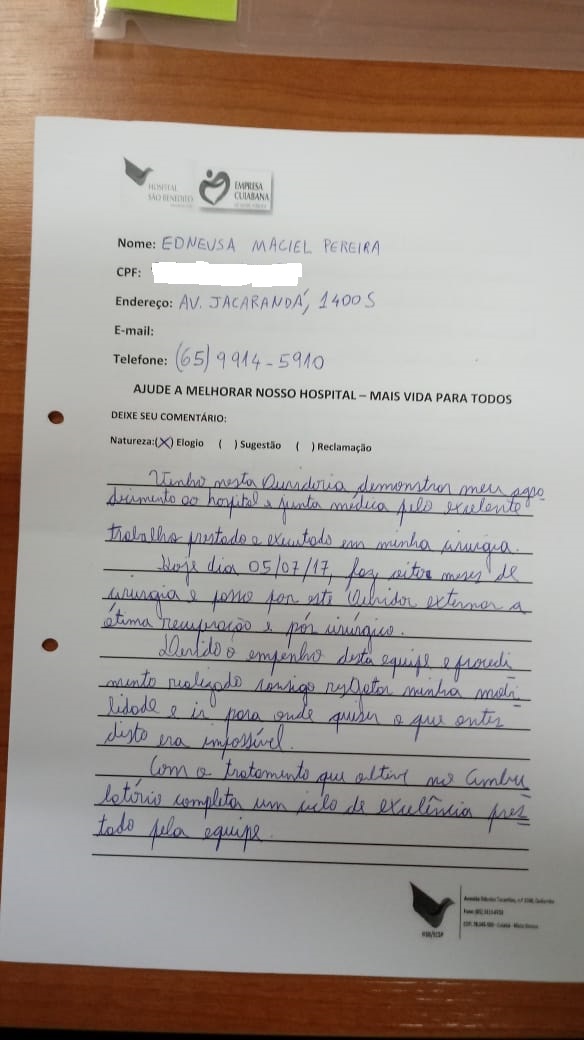 HOSPITAL
SÃO BENEDITO
EMPRESA
CUIABANA
Nome: EDNEUSA MACIEL PEREIRA
CPF:
Endereço: AV. JACARANDÁ, 1400 S
E-mail:
Telefone: (65) 9914-5910
AJUDE A MELHORAR NOSSO HOSPITAL – MAIS VIDA PARA TODOS
DEIXE SEU COMENTÁRIO:
Natureza:(X) Elogio ( ) Sugestão ( ) Reclamação
Venho nesta Ouvidoria demonstrar meu agra
decimento ao hospital e junta médica pelo excelente
trabalho prestado e executado em minha cirurgia.
Hoje dia 05/07/17, faz oito meses de
cirurgia e posso por este Ouvidor externar a
ótima recuperação e pós cirúrgico.
Devido o empenho desta equipe e procedi
mento realizado consigo resgatar minha mobi
lidade e ir para onde quiser o que antes
disto era impossível.
Com o tratamento que obtive no Ambu
latório completa um ciclo de excelência pres
tado pela equipe.
HSB/ECSP